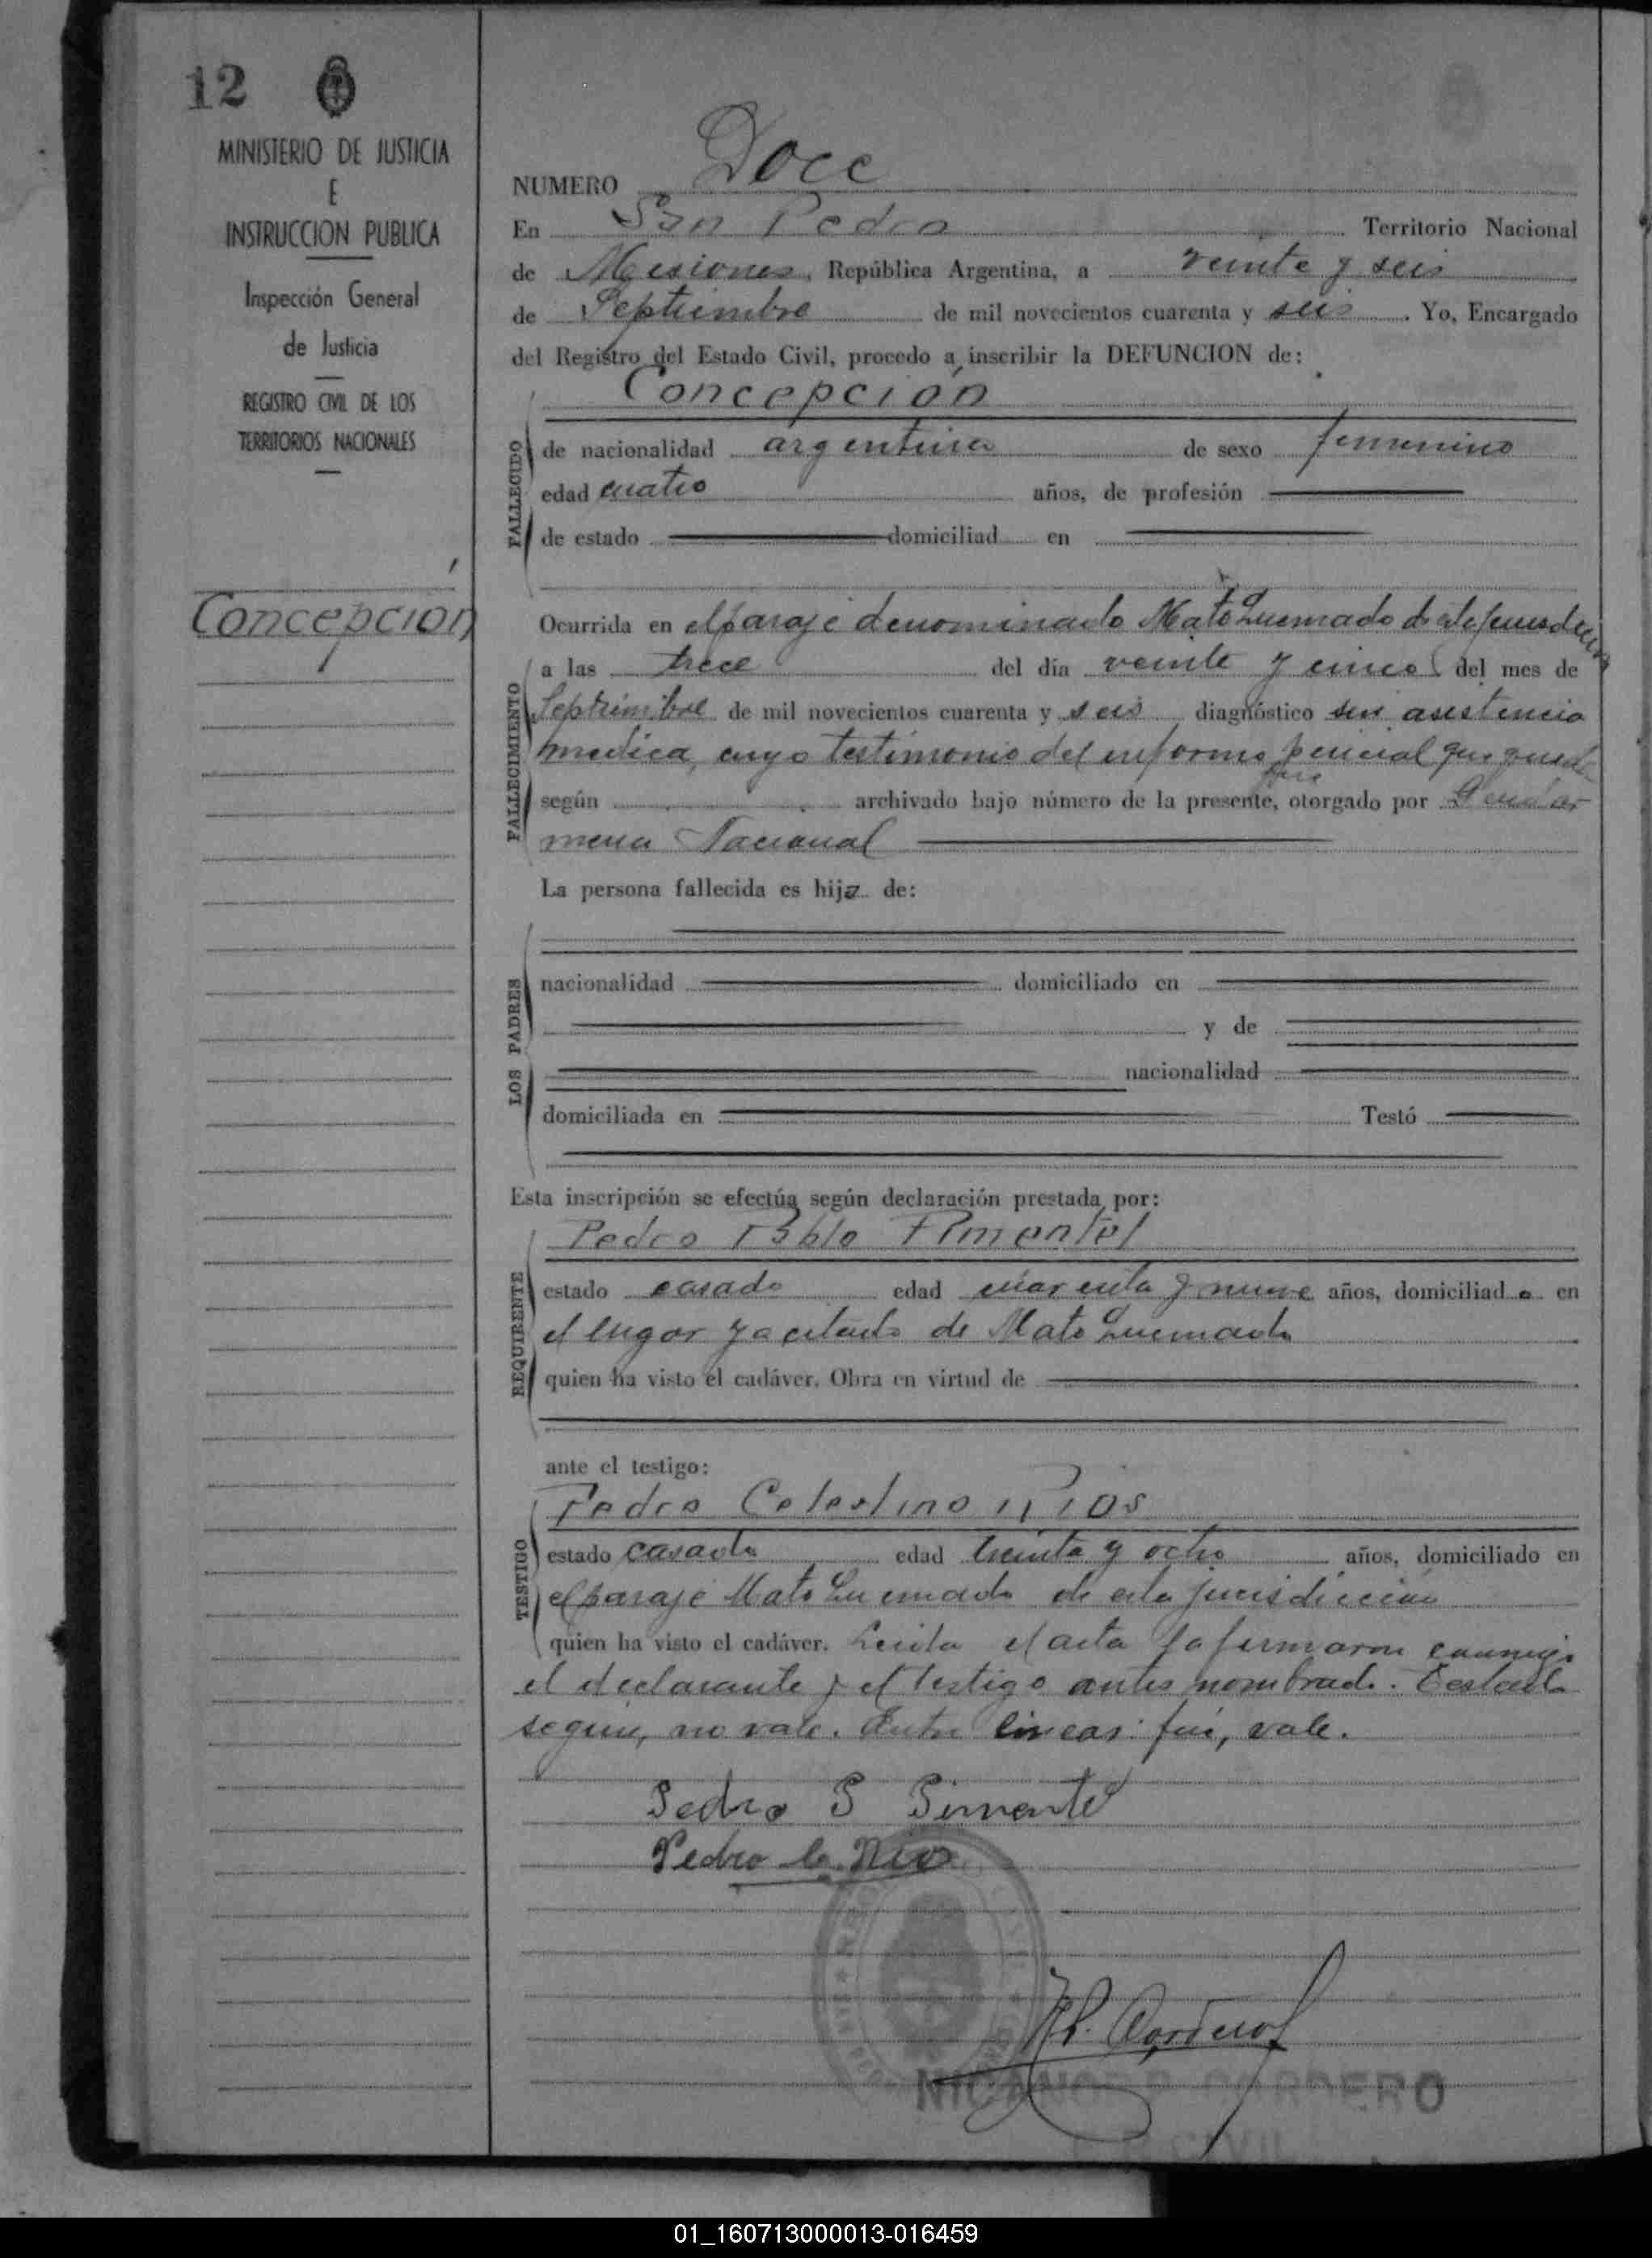 12
MINISTERIO DE JUSTICIA
E
INSTRUCCION PUBLICA
Inspección General
de Justicia
REGISTRO CIVIL DE LOS
TERRITORIOS NACIONALES
Concepción
NUMERO Doce
En San Pedro Territorio Nacional
de Misiones, República Argentina, a veinte y seis
de Septiembre de mil novecientos cuarenta y seis. Yo, Encargado
del Registro del Estado Civil, procedo a inscribir la DEFUNCION de:
Concepción
FALLECIDO
de nacionalidad argentina de sexo femenino
edad cuatro años, de profesión
de estado domiciliad en
Ocurrida en el paraje denominado Mato Quemado de
FALLECIMIENTO
a las trece del día veinte y cinco del mes de
Septiembre de mil novecientos cuarenta y seis diagnóstico sin asistencia
medica, cuyo testimonio del informe pericial que queda
fué
según archivado bajo número de la presente, otorgado por Gendar
meria Nacional
La persona fallecida es hija de:
LOS PADRES
nacionalidad domiciliado en
y de
nacionalidad
domiciliada en Testó
Esta inscripción se efectúa según declaración prestada por:
Pedro Pablo Pimentel
REQUIRENTE
estado casado edad cuarenta y nueve años, domiciliado en
el lugar ya citado de Mato Quemado
quien ha visto el cadáver. Obra en virtud de
ante el testigo:
Pedro Celestino Rios
TESTIGO
estado casado edad treinta y ocho años, domiciliado en
el paraje Mato Quemado de esta jurisdicción
quien ha visto el cadáver. Leida el acta la firmaron conmigo
el declarante y el testigo antes nombrado. Testado
segun, no vale. Entre lineas: fué, vale.
Pedro P Pimentel
Pedro C. Rios
N. P. Cordero
NICANOR P. CORDERO
CIVIL
01_160713000013-016459